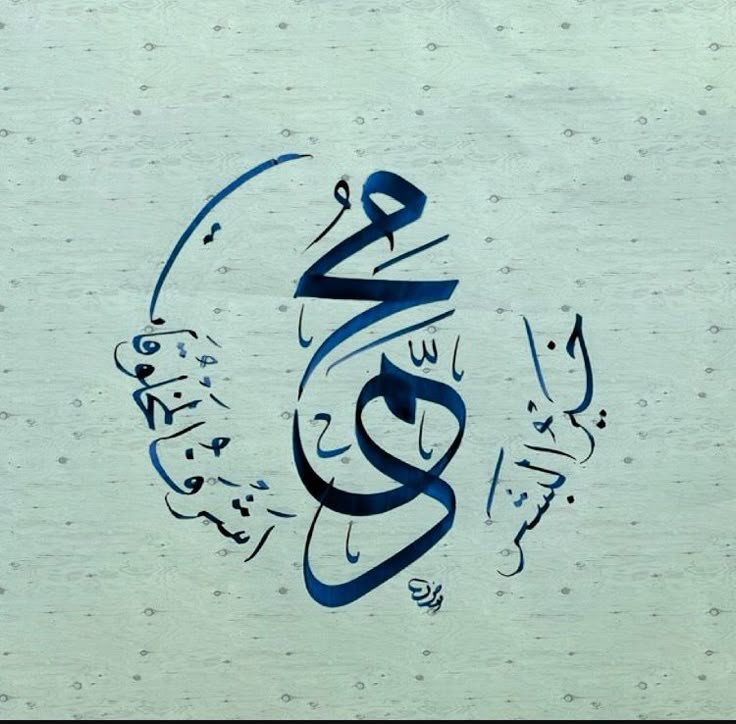 مُحَمَّد
خير البشر
اشرف المخلوقات